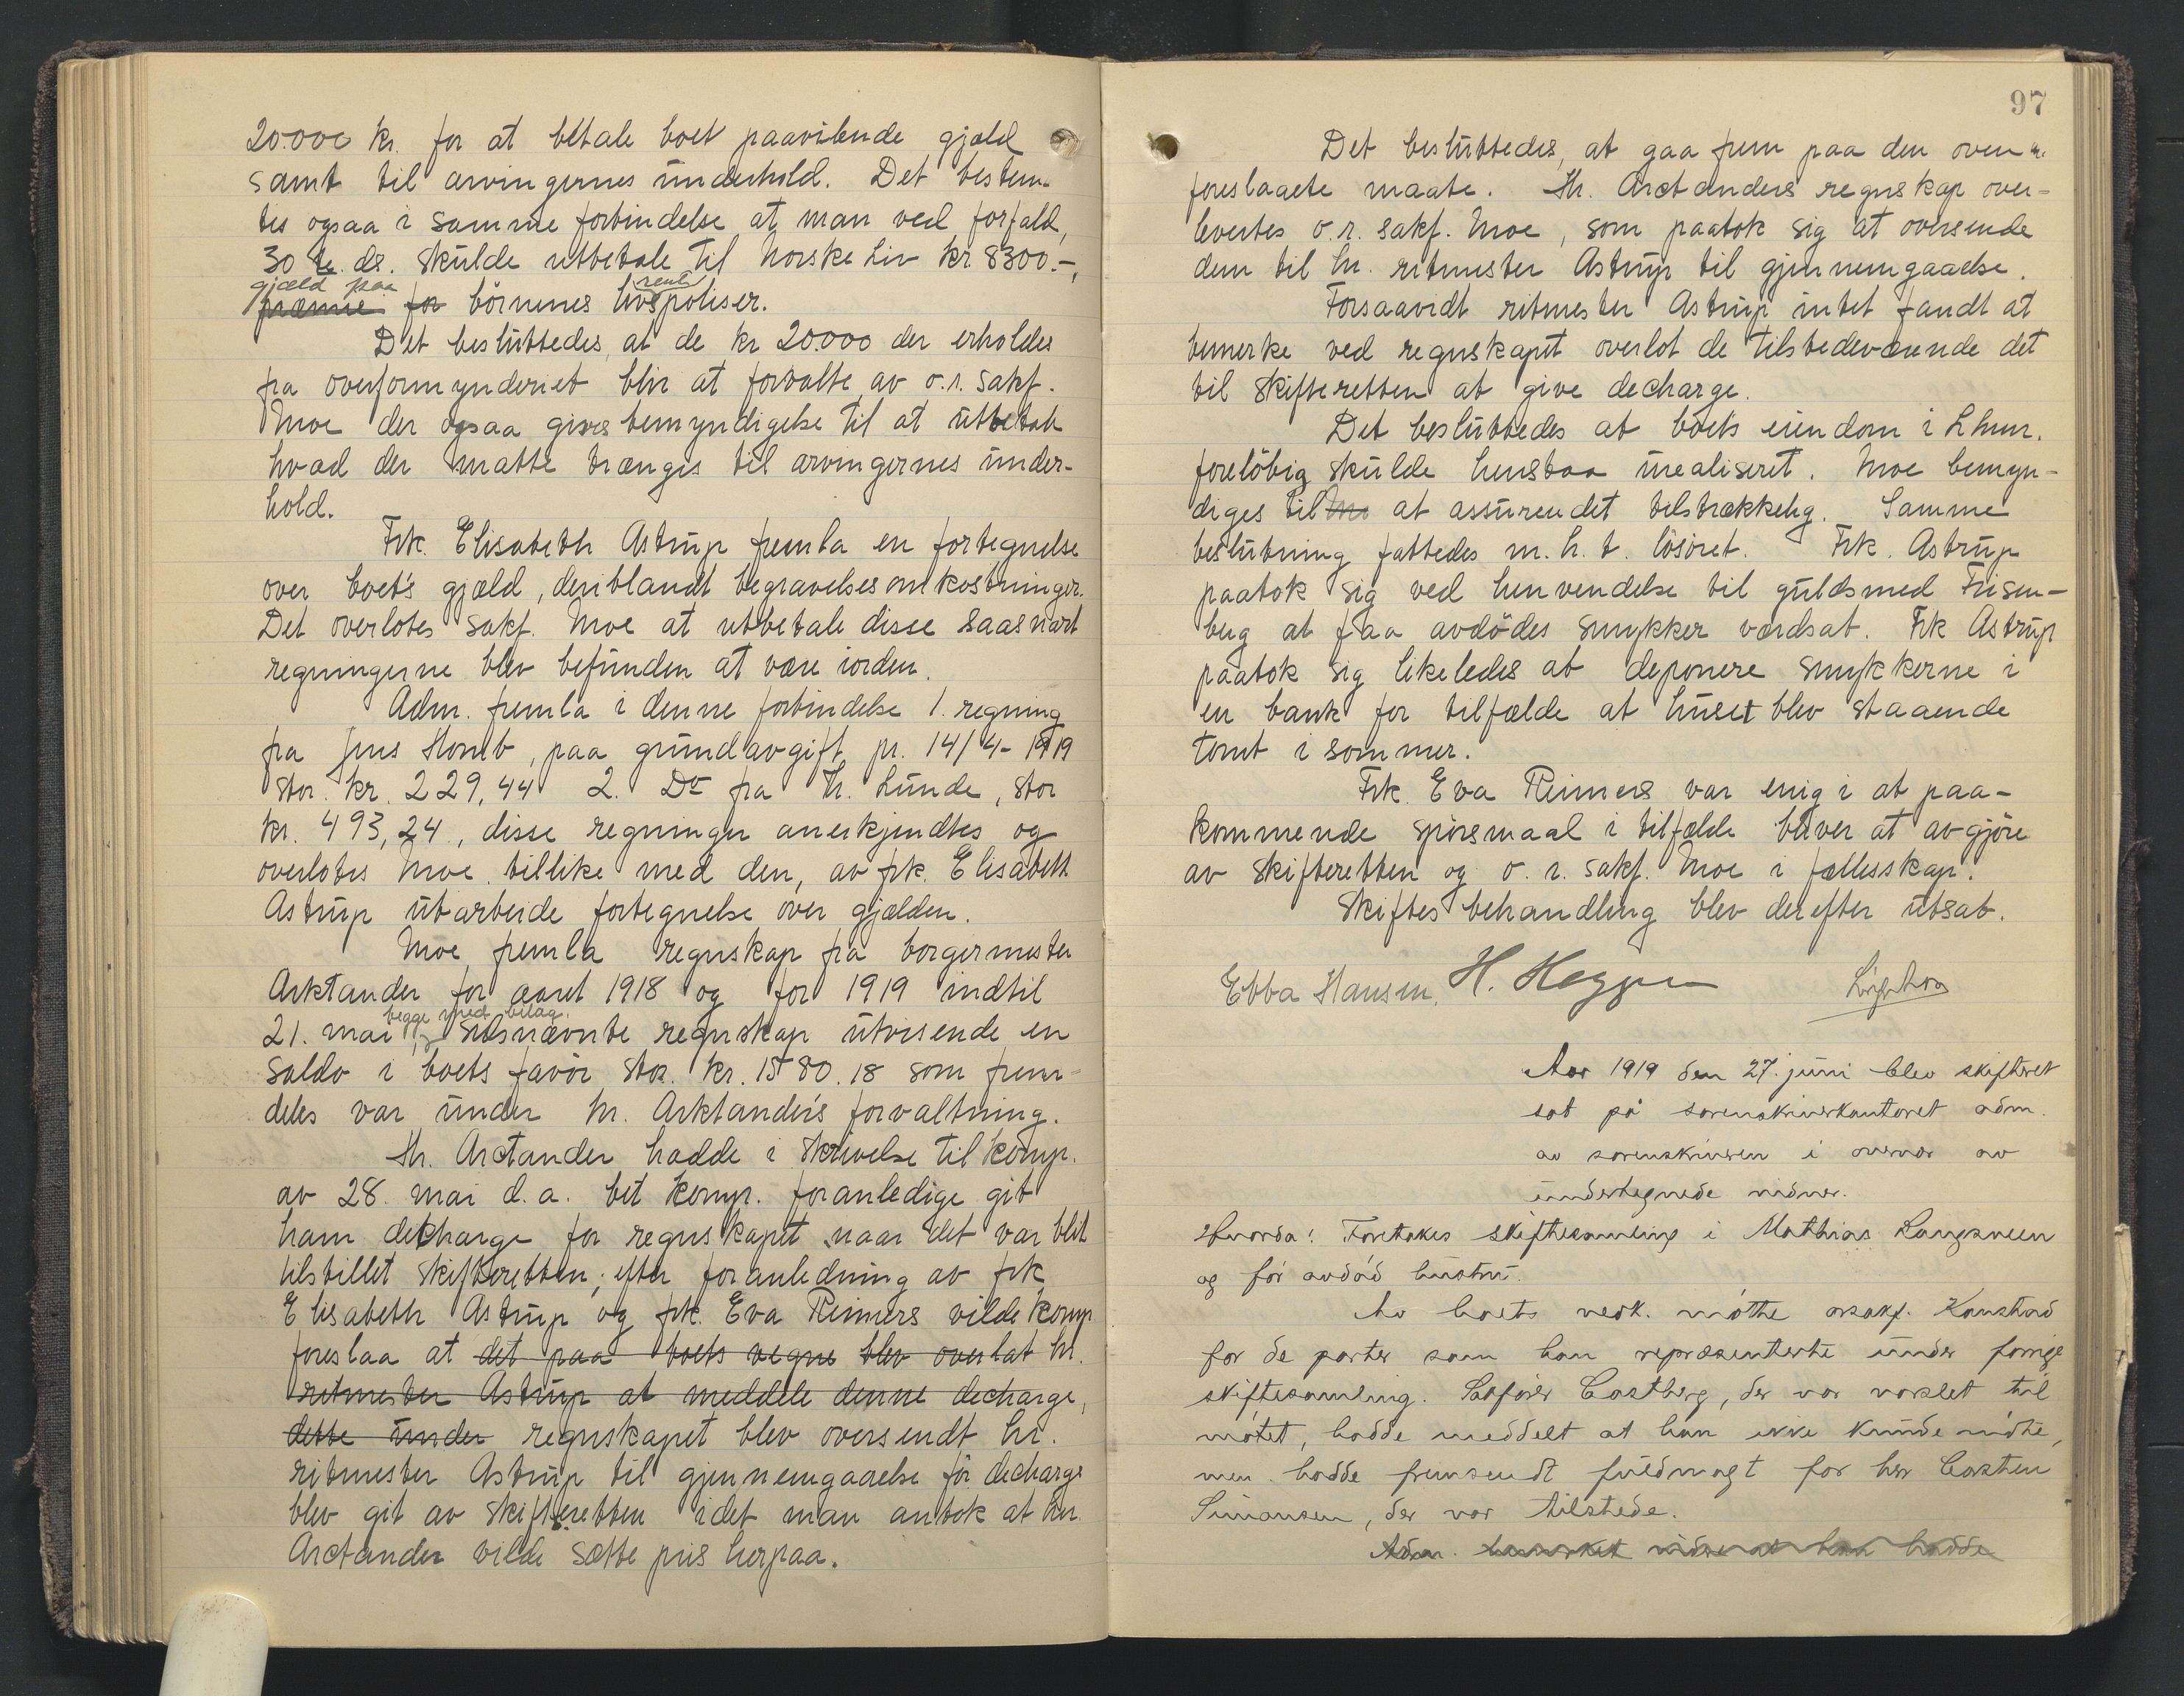 20.000 kr. for at betale boet paavilende gjæld
samt til arvingernes underhold. Det bestem-
tes ogsaa i samme forbindelse at man ved forfald,
30 te. ds. skulde utbetale til Norske Liv kr 8300.-,
gjæld paa rente
præmie for börnenes livspoliser.
Det besluttedes at de kr 20.000 der erholdes
fra overformynderiet blir at forvalte av o.r. sakf.
Moe der ogsaa gives bemyndigelse til at utbetale
hvad der maatte trænges til arvingernes under-
hold.
Frk. Elisabeth Astrup fremla en fortegnelse
over boet's gjæld, deriblandt begravelsesomkostninger.
Det overlotes sakf. Moe at utbetale disse saasnart
regningerne blev befunden at være iorden.
Adm. fremla i denne forbindelse 1. regning
fra Jens Homb, paa grundavgift pr. 14/4-1919
stor. kr. 229,44 2. Do fra Th. Lunde, stor
kr. 493,24, disse regninger anerkjendtes og
overlotes Moe tillike med den, av frk. Elisabeth
Astrup utarbeide fortegnelse over gjælden.
Moe fremla regnskap fra borgermester
Arktander for aaret 1918 og for 1919 indtil
begge med bilag.
21. mai, sidsnævnte regnskap utvisende en
saldo i boets favör stor. kr. 1580.18 som frem-
deles var under hr. Arktander's forvaltning.
Hr. Arctander hadde i skrivelse til komp.
av 28. mai d.a. bet komp. foranledige git
ham decharge for regnskapet naar det var blit
tilstillet skifteretten; efter foranledning av frk.
Elisabeth Astrup og frk. Eva Reimers vilde komp
foreslaa at det paa boets vegne blev overlat hr.
ritmester Astrup at meddele denne decharge,
dette under regnskapet blev oversendt hr.
ritmester Astrup til gjennemgaaelse för decharge
blev git av skifteretten idet man antok at hr.
Arctander vilde sætte pris herpaa.
97
Det besluttedes, at gaa frem paa den oven
foreslaaete maate. Hr. Arctanders regnskap over-
levertes o.r. sakf. Moe, som paatok sig at oversende
dem til hr. ritmester Astrup til gjennemgaaelse.
Forsaavidt ritmester Astrup intet fandt at
bemerke ved regnskapet overlot de tilstedeværende det
til skifteretten at give decharge.
Det besluttedes at boets eiendom i Lhmr.
foreløbig skulde henstaa urealiseret. Moe bemyn-
diges til at assurendet tilstrækkelig. Samme
beslutning fattedes m.h.t. lösöret. Frk. Astrup
paatok sig ved henvendelse til guldsmed Frisen-
berg at faa avdödes smykker værdsat. Frk Astrup
paatok sig likeledes at deponere smykkerne i
en bank for tilfælde at huset blev staaende
tomt i sommer.
Frk. Eva Reimers var enig i at paa-
kommende spörsmaal i tilfælde bliver at avgjöre
av skifteretten og o.r. sakf. Moe i fællesskap.
Skiftesbehandling blev derefter utsat.
Ebba Hansen, H. Heggen
Aar 1919 den 27. juni blev skifteret
sat på sorenskriverkontoret adm.
av sorenskriveren i overvær av
undertegnede vidner.
Hvorda: Foretokes skiftesamling i Mathias Langsveen
og før avdød hustru.
Av boets vedk. møtte orsakf. Konstad
for de parter som han repræsenterte under forrige
skiftesamling. Sakfører Castberg, der var varslet til
møtet, hadde meddelt at han ikke kunde møte,
men hadde fremsendt fuldmagt for herr Carsten
Simonsen, der var tilstede.
Adm. bemerket videre at han hadde